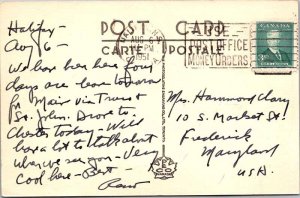 Halifax
POST CARD
CARTE POSTALE
AUG 6
PM
1951
USE
POST OFFICE
MONEY ORDERS
CANADA
Aug 6 -
We have been here four
days are leaving
for Maine via Truro &
St. John. Drove to
Chester today - Will
have a lot to talk about
when we see you - Very
cool here - Best -
Mrs. Hammond Clary
10 S. Market St.
Frederick
Maryland
U.S.A.